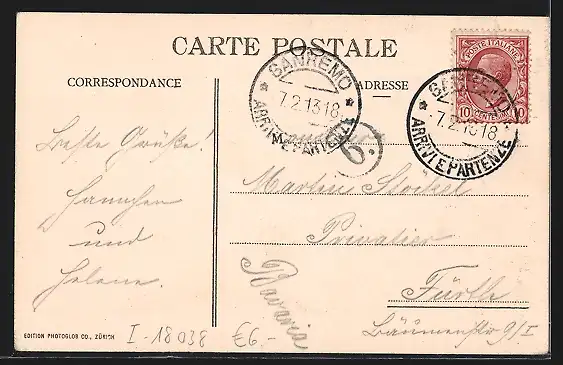 CARTE POSTALE
CORRESPONDANCE
ADRESSE
POSTE ITALIANE
10 CENTESIMI 10
SANREMO
7.2.13 18
ARRIVI E PARTENZE
SANREMO
7.2.13 18
ARRIVI E PARTENZE
6.
Beste Grüße!
Hannchen
und
Helene.
Martin
Privatier
Fürth
Bäumenstr 9/I
Bavaria
EDITION PHOTOGLOB CO., ZÜRICH
I-18038
€6.-